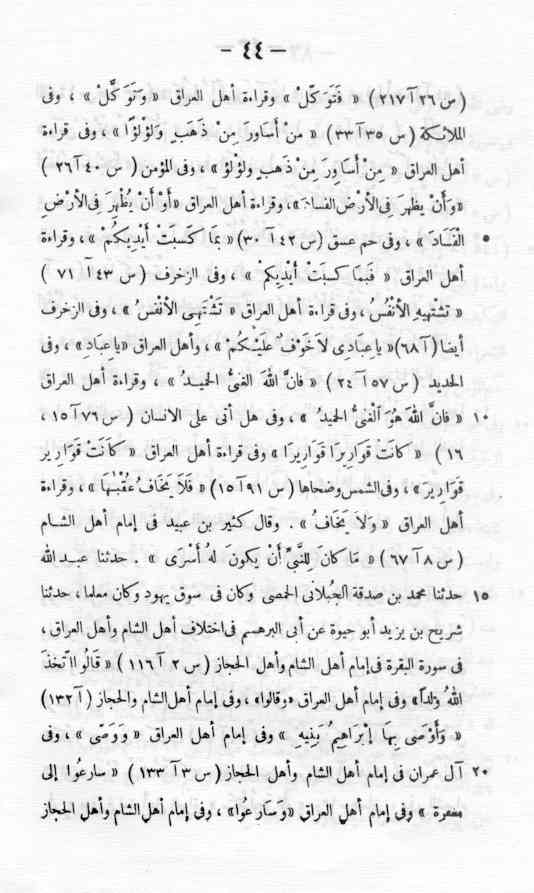 — ٤٤ —
(س ٢٦ آ ٢١٧) « فَتَوَكّلْ » وقراءة أهل العراق « وَتَوَكَّلْ » ، وفى
الملائكة (س ٣٥ آ ٣٣) « مِنْ أَسَاوِرَ مِنْ ذَهَبٍ وَلُؤْلُؤًا » ، وفى قراءة
أهل العراق « مِنْ أَسَاوِرَ مِنْ ذَهَبٍ ولؤلؤ » ، وفى المؤمن (س ٤٠ آ ٢٦)
«وَأَنْ يظهر فى الأرْضِ الفسادَ»، وقراءة أهل العراق «أَوْ أَنْ يُظْهِرَ فى الأرْضِ
• الْفَسَادَ » ، وفى حم عسق (س ٤٢ آ ٣٠) « بِمَا كَسَبَتْ أَيْدِيكُمْ » ، وقراءة
أهل العراق « فَبِمَا كسبَتْ أيْدِيكمْ » ، وفى الزخرف (س ٤٣ آ ٧١)
« تشْتهيهِ الأنْفُسُ ، وفى قراءة أهل العراق « تَشْتَهِى الأنْفُسُ » ، وفى الزخرف
أيضا (آ ٦٨) « ياعبَادِى لاَخَوْفٌ عَلَيْكُمْ » ، وأهل العراق «ياعِبَادِ» ، وفى
الحديد (س ٥٧ آ ٢٤) « فانَّ اللهَ الغنىُّ الحميدُ » ، وقراءة أهل العراق
١٠ « فانَّ اللهَ هُوَ الْغنىُّ الحميدُ » ، وفى هل أتى على الانسان (س ٧٦ آ ١٥ ،
١٦) « كانَتْ قَوَارِيرَا قَوَارِيرَا » وفى قراءة أهل العراق « كَانَتْ قَوَارِيرَ
قَوَارِيرَ » ، وفى الشمس وضحاها (س ٩١ آ ١٥) « فَلَا يَخَافُ عُقْبَٰهَا » ، وقراءة
أهل العراق « وَلاَ يَخَافُ » . وقال كثير بن عبيد فى إمام أهل الشام
(س ٨ آ ٦٧) « مَا كانَ لِلنَّبِىِّ أَنْ يكونَ لهُ أَسْرَى » . حدثنا عبد الله
١٥ حدثنا محمد بن صدقة الجُبلانى الحمصى وكان فى سوق يهود وكان معلما ، حدثنا
شريح بن يزيد أبو حيوة عن أبى البرهسم فى اختلاف أهل الشام وأهل العراق ،
فى سورة البقرة فى إمام أهل الشام وأهل الحجاز (س ٢ آ ١١٦) « قَالُوا اتّخذَ
اللهُ ولداً» وفى إمام أهل العراق «وقالوا» ، وفى إمام أهل الشام والحجاز (آ ١٣٢)
« وَأَوْصَى بِهَا إبْرَاهِيمُ بَنِيهِ » وفى إمام أهل العراق « وَوَصّى » ، وفى
٢٠ آل عمران فى إمام أهل الشام وأهل الحجاز (س ٣ آ ١٣٣) « سارعُوا إلى
مغفرة » وفى إمام أهل العراق «وَسَارِعُوا» ، وفى إمام أهل الشام وأهل الحجاز